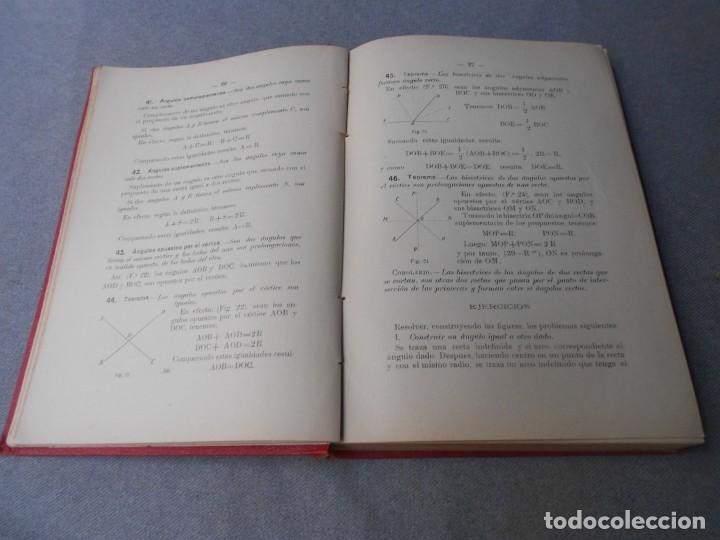 41. Angulos complementarios.—Son dos ángulos cuya suma
vale un recto.
Complemento de un ángulo es otro ángulo que sumado con
el propuesto da un ángulo recto.
Si dos ángulos A y B tienen el mismo complemento C, son
iguales.
En efecto según la definición, tenemos:
A+C=R; B+C=R.
Comparando estas igualdades resulta A=B.
42. Angulos suplementarios.—Son dos ángulos cuya suma
vale dos rectos.
Suplemento de un ángulo es otro ángulo que sumado con el
propuesto da una suma igual a dos rectos.
Si dos ángulos A y B tienen el mismo suplemento S, son
iguales.
En efecto, según la definición, tenemos:
Comparando estas igualdades resulta A=B.
43. Angulos opuestos por el vértice—Son dos ángulos que
tienen el mismo vértice y los lados del uno son prolongaciones,
en sentido opuesto, de los lados del otro.
Así (F.ª 22), los ángulos AOB y DOC, lo mismo que los
AOD y BOC, son opuestos por el vértice.
44. Teorema.—Los ángulos opuestos por el vértice son
iguales.
En efecto: (Fig. 22), sean los án-
gulos opuestos por el vértice AOB y
DOC, tenemos:
AOB+ AOD=2R
DOC+ AOD=2R
Comparando estas igualdades resul-
ta AOB=DOC.
— 27 —
45. Teorema.—Las bisectrices de dos ángulos adyacentes
forman ángulo recto.
En efecto (F.ª 23), sean los ángulos adyacentes AOB y
BOC y sus bisectrices OD y OE.
Tenemos DOB=1/2 AOB
BOE=1/2 BOC
Sumando estas igualdades, resulta:
DOB+BOE=1/2 (AOB+BOC)=1/2 . 2R=R,
y como DOB+BOE=DOE, resulta DOE=R.
46. Teorema.—Las bisectrices de dos ángulos opuestos por
el vértice son prolongaciones opuestas de una recta.
En efecto, (F.ª 24), sean los ángulos
opuestos por el vértice AOC y BOD, y
sus bisectrices OM y ON.
Trazando la bisectriz OP del ángulo COB,
suplementario de los propuestos, tenemos:
MOP=R, PON=R.
Luego: MOP+PON=2 R
y por tanto, ON es prolonga-
ción de OM.
COROLARIO.—Las bisectrices de los ángulos de dos rectas que
se cortan, son otras dos rectas que pasan por el punto de inter-
sección de las primeras y forman entre sí ángulos rectos.
EJERCICIOS
Resolver, construyendo las figuras, los problemas siguientes:
1. Construir un ángulo igual a otro dado.
Se traza una recta indefinida y el arco correspondiente al
ángulo dado. Después, haciendo centro en un punto de la recta
y con el mismo radio, se traza un arco indefinido que tenga el
todocoleccion.net